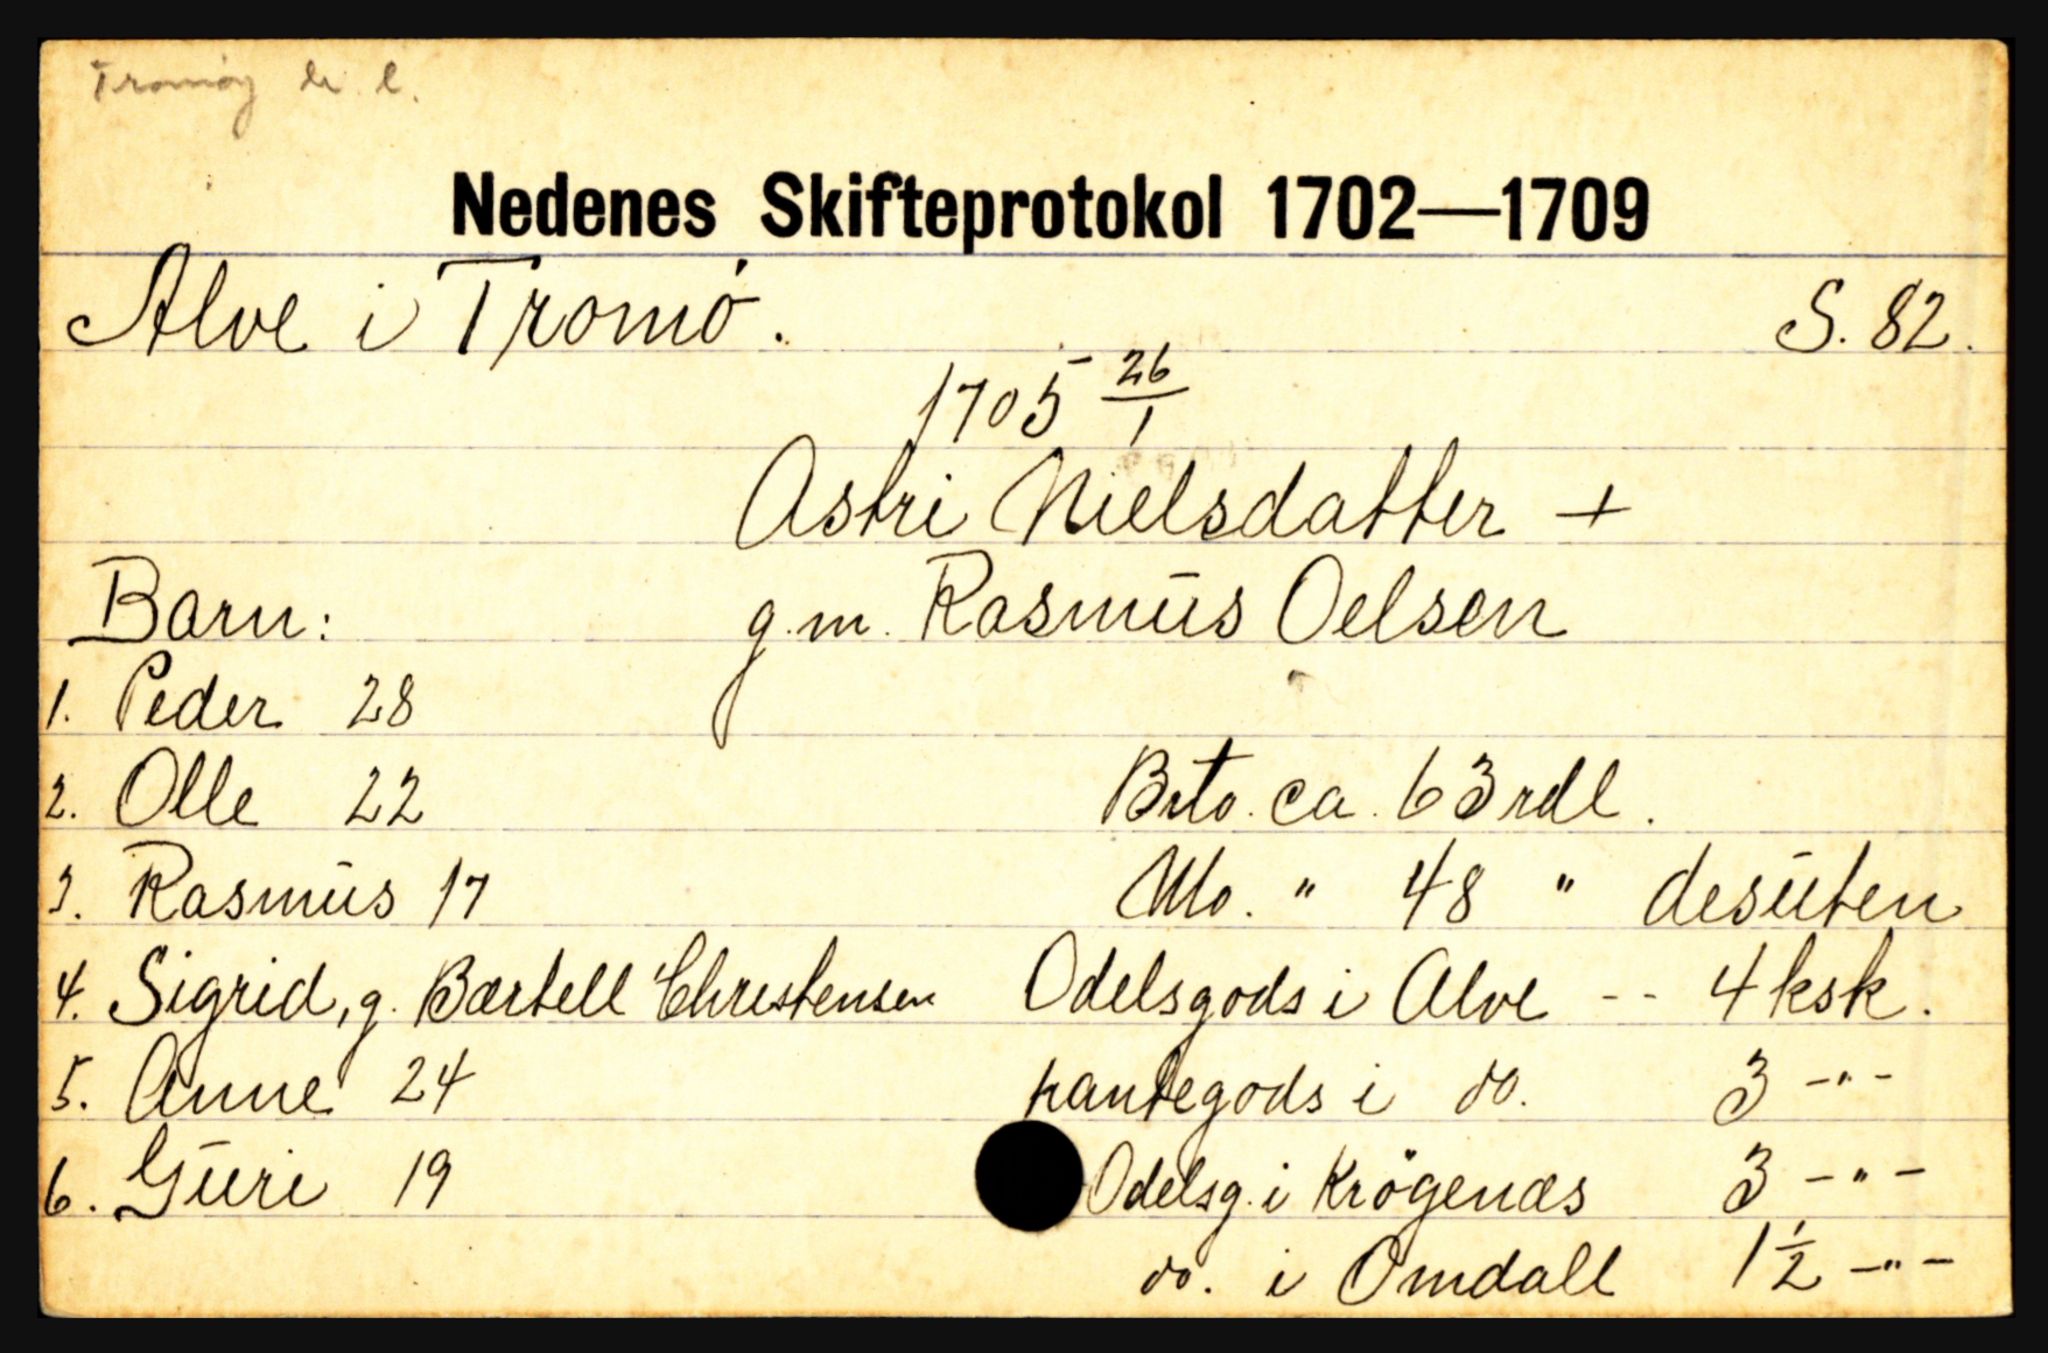 Tromøy h. l.
Nedenes Skifteprotokol 1702—1709
Alve i Tromö. S. 82.
1705 26/1
Astri Nielsdatter +
Barn: g.m. Rasmus Oelsen
1. Peder 28
2. Olle 22 Brto. ca. 63 rdl.
3. Rasmus 17 Nto. " 48 " desuten
4. Sigrid, g. Bærtell Christensen Odelsgods i Alve -- 4 ksk.
5. Anne 24 pantegods i do. 3 -"-
6. Guri 19 Odelsg. i Krögenæs 3 -"-
do. i Omdall 1 1/2 -"-